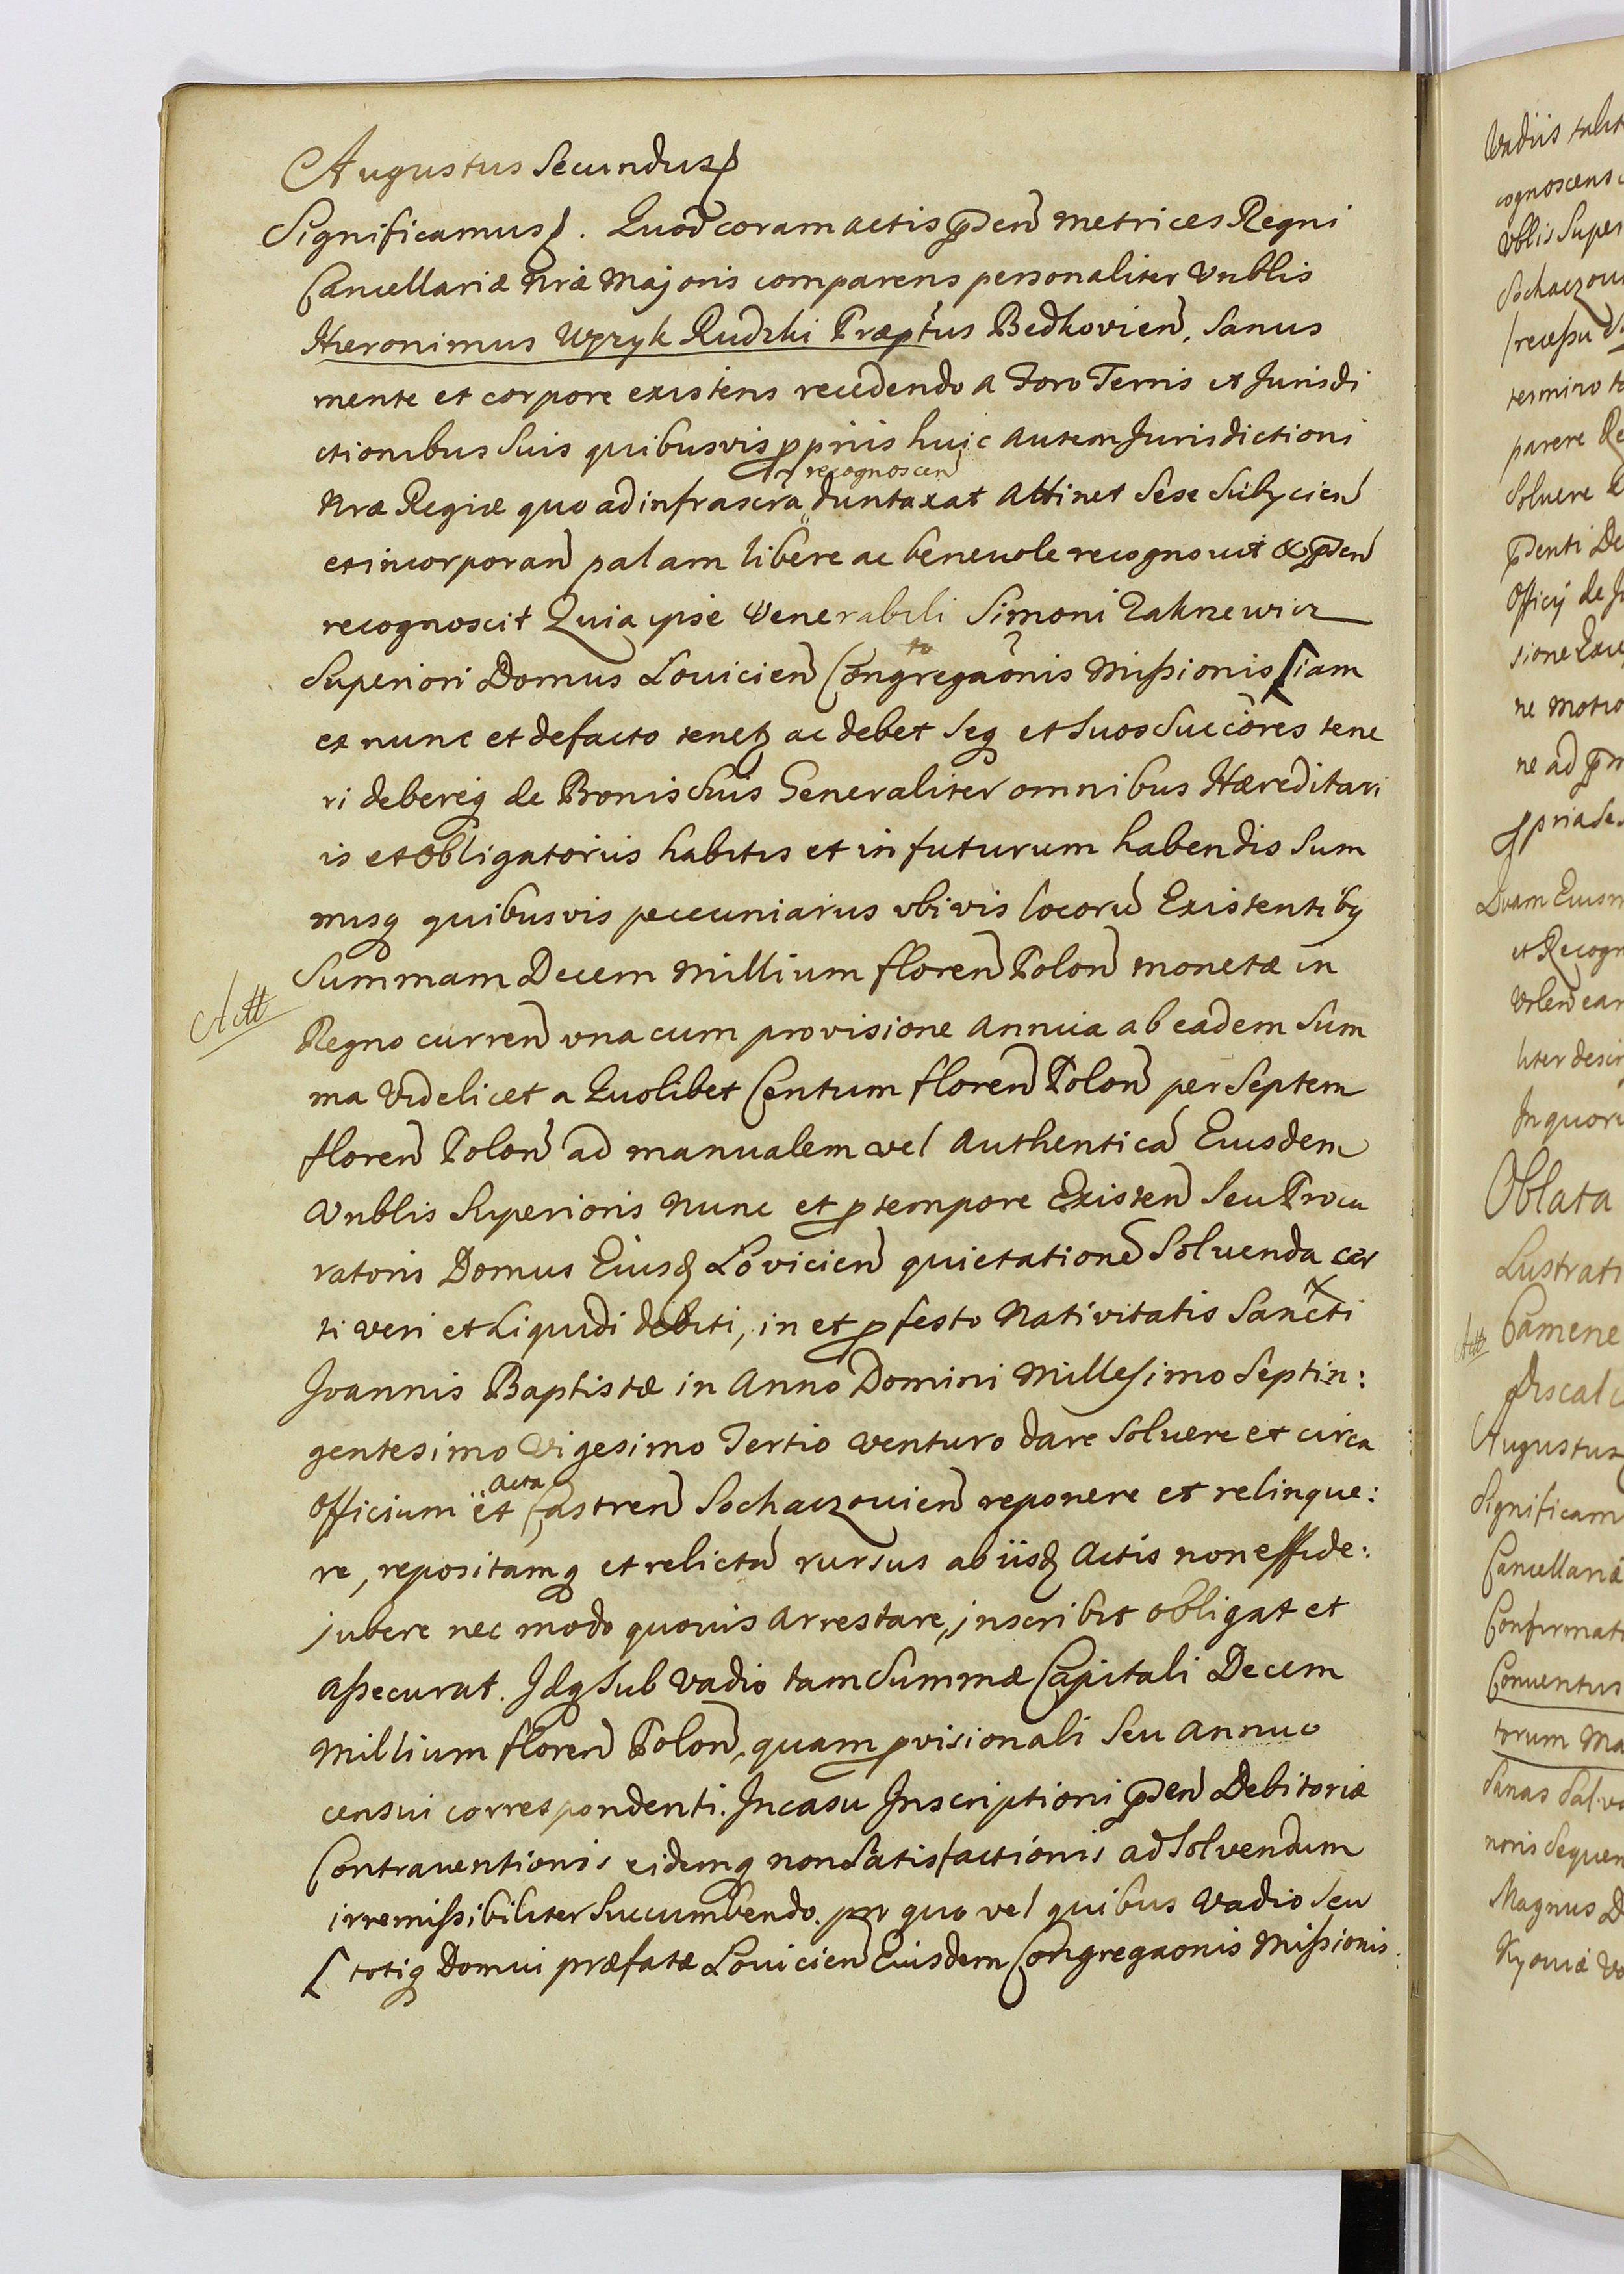 Augustus Secundus
Significamus. Quod coram actis pñden Metrices Regni
Cancellariæ Nræ Majoris comparens personaliter Vnblis
Hieronimus Wpryk Rudzki Præptus Bedkovien. Sanus
mente et corpore existens recedendo a Foro Terris et Jurisdi
ctionibus Suis quibusvis ppriis huic autem Jurisdictioni
recognoscen
Nræ Regiæ quo ad infrascra duntaxat Attinet Sese Subycien
et incorporan palam libere ac beneuole recognouit & pñden
recognoscit Quia ipse Venerabili Simoni Zaknewicz
Superiori Domus Louicien Congregaonis Missionis [iam
ex nunc et defacto tenetq ac debet Seq et Suos Succores tene
ri debereq de Bonis Suis Generaliter omnibus Hæreditari
is et Obligatoriis habitis et in futurum habendis Sum
misq quibusvis pecuniarus vbivis locoru Existentibq
Summam Decem Millium floren Polon monetæ in
Actt
Regno curren vna cum provisione annua ab eadem Sum
ma Videlicet a Quolibet Centum floren Polon per Septem
floren Polon ad manualem vel Authentica Eiusdem
Vnblis Superioris Nunc et p tempore Existen Seu Procu
ratoris Domus Eiusq Lovicien quietatione Soluenda cer
ti veri et Liquidi debiti, in et p festo Nativitatis Sancti
Joannis Baptistæ in Anno Domini Millesimo Septin:
gentesimo Vigesimo Tertio venturo dare Soluere et circa
Acta
Officium et Castren Sochaczouien reponere et relinque:
re, repositamq et relicta rursus ab iisq Actis non effide:
jubere nec modo quouis arrestare, inscribit obligat et
assecurat. Idq Sub Vadio tam Summæ Capitali Decem
Millium floren Polon, quam pvisionali Seu annuo
censui correspondenti. In casu Inscriptioni pñden Debitoriæ
Contrauentionis eidemq non Satisfactionis ad Solvendum
irremissibiliter Succumbendo. pro quo vel quibus Vadio Seu
[ totiq Domui præfatæ Louicien Eiusdem Congregaonis Missionis.
Vadiis
cognoscens
Vblis Super
termino
parere
Soluere
pñdenti De
Officij de
sione
ne motio
ne ad
ppria
Quam Eiusm
et Recogn
liter
In quoru
Oblata
Lustrati
Actt
Camene
Augustus
Significam
Cancellariæ
Confirmati
Conuentus
torum Ma
Sanas Salva
noris Sequen
Magnus D
Kyouiæ